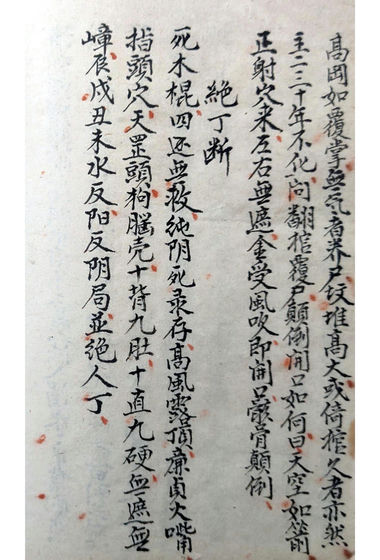 高岡如覆掌無气者养尸坟堆高大或倚棺久者亦然
主二三十年不化问翻棺覆尸顛倒開口如何曰天空如箭
正射穴來左右無遮金受風吹即開口骸骨顛倒
絶丁断
死木棍四还無救纯阴死录存高風露頂廉貞火嘴
指頭穴天罡頭狗腦壳十背九肚十直九硬無遮無
嶂辰戌丑未水反阳反阴局並絶人丁